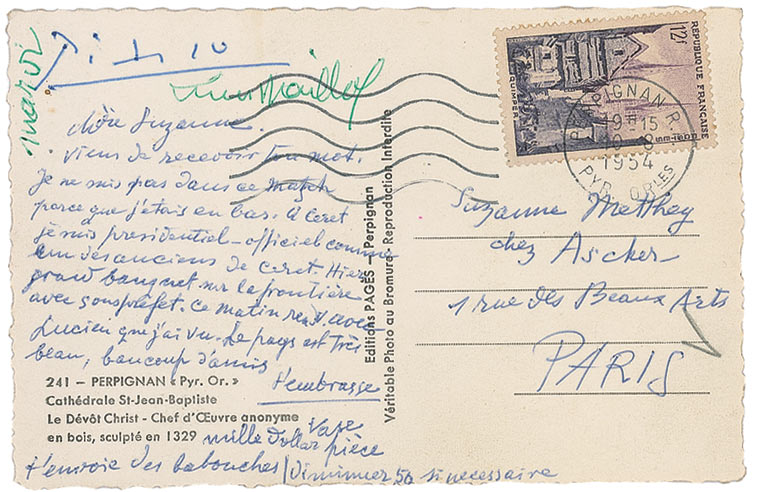 chère Suzanne.
viens de recevoir ton mot.
Je ne suis pas dans ce match
parce que j'étais en bas. A Ceret
je suis presidentiel - officiel comme
un des anciens de Ceret. Hier
grand banquet sur la frontière
avec sous préfet. Ce matin avec
Lucien que j'ai vu. Le pays est très
beau, beaucoup d'amis
t'embrasse
241 - PERPIGNAN « Pyr. Or. »
Cathédrale St-Jean-Baptiste
Le Dévôt Christ - Chef d'Œuvre anonyme
en bois, sculpté en 1329
mille dollar pièce
t'envoie des babouches / diminuer 50 si necessaire
Editions PAGES - Perpignan
Véritable Photo au Bromure - Reproduction Interdite
12f
REPUBLIQUE FRANÇAISE
QUIMPER
PERPIGNAN R.P.
19H15
1954
PYR. ORLES
Suzanne Matthey
chez Ascher
1 rue des Beaux Arts
PARIS